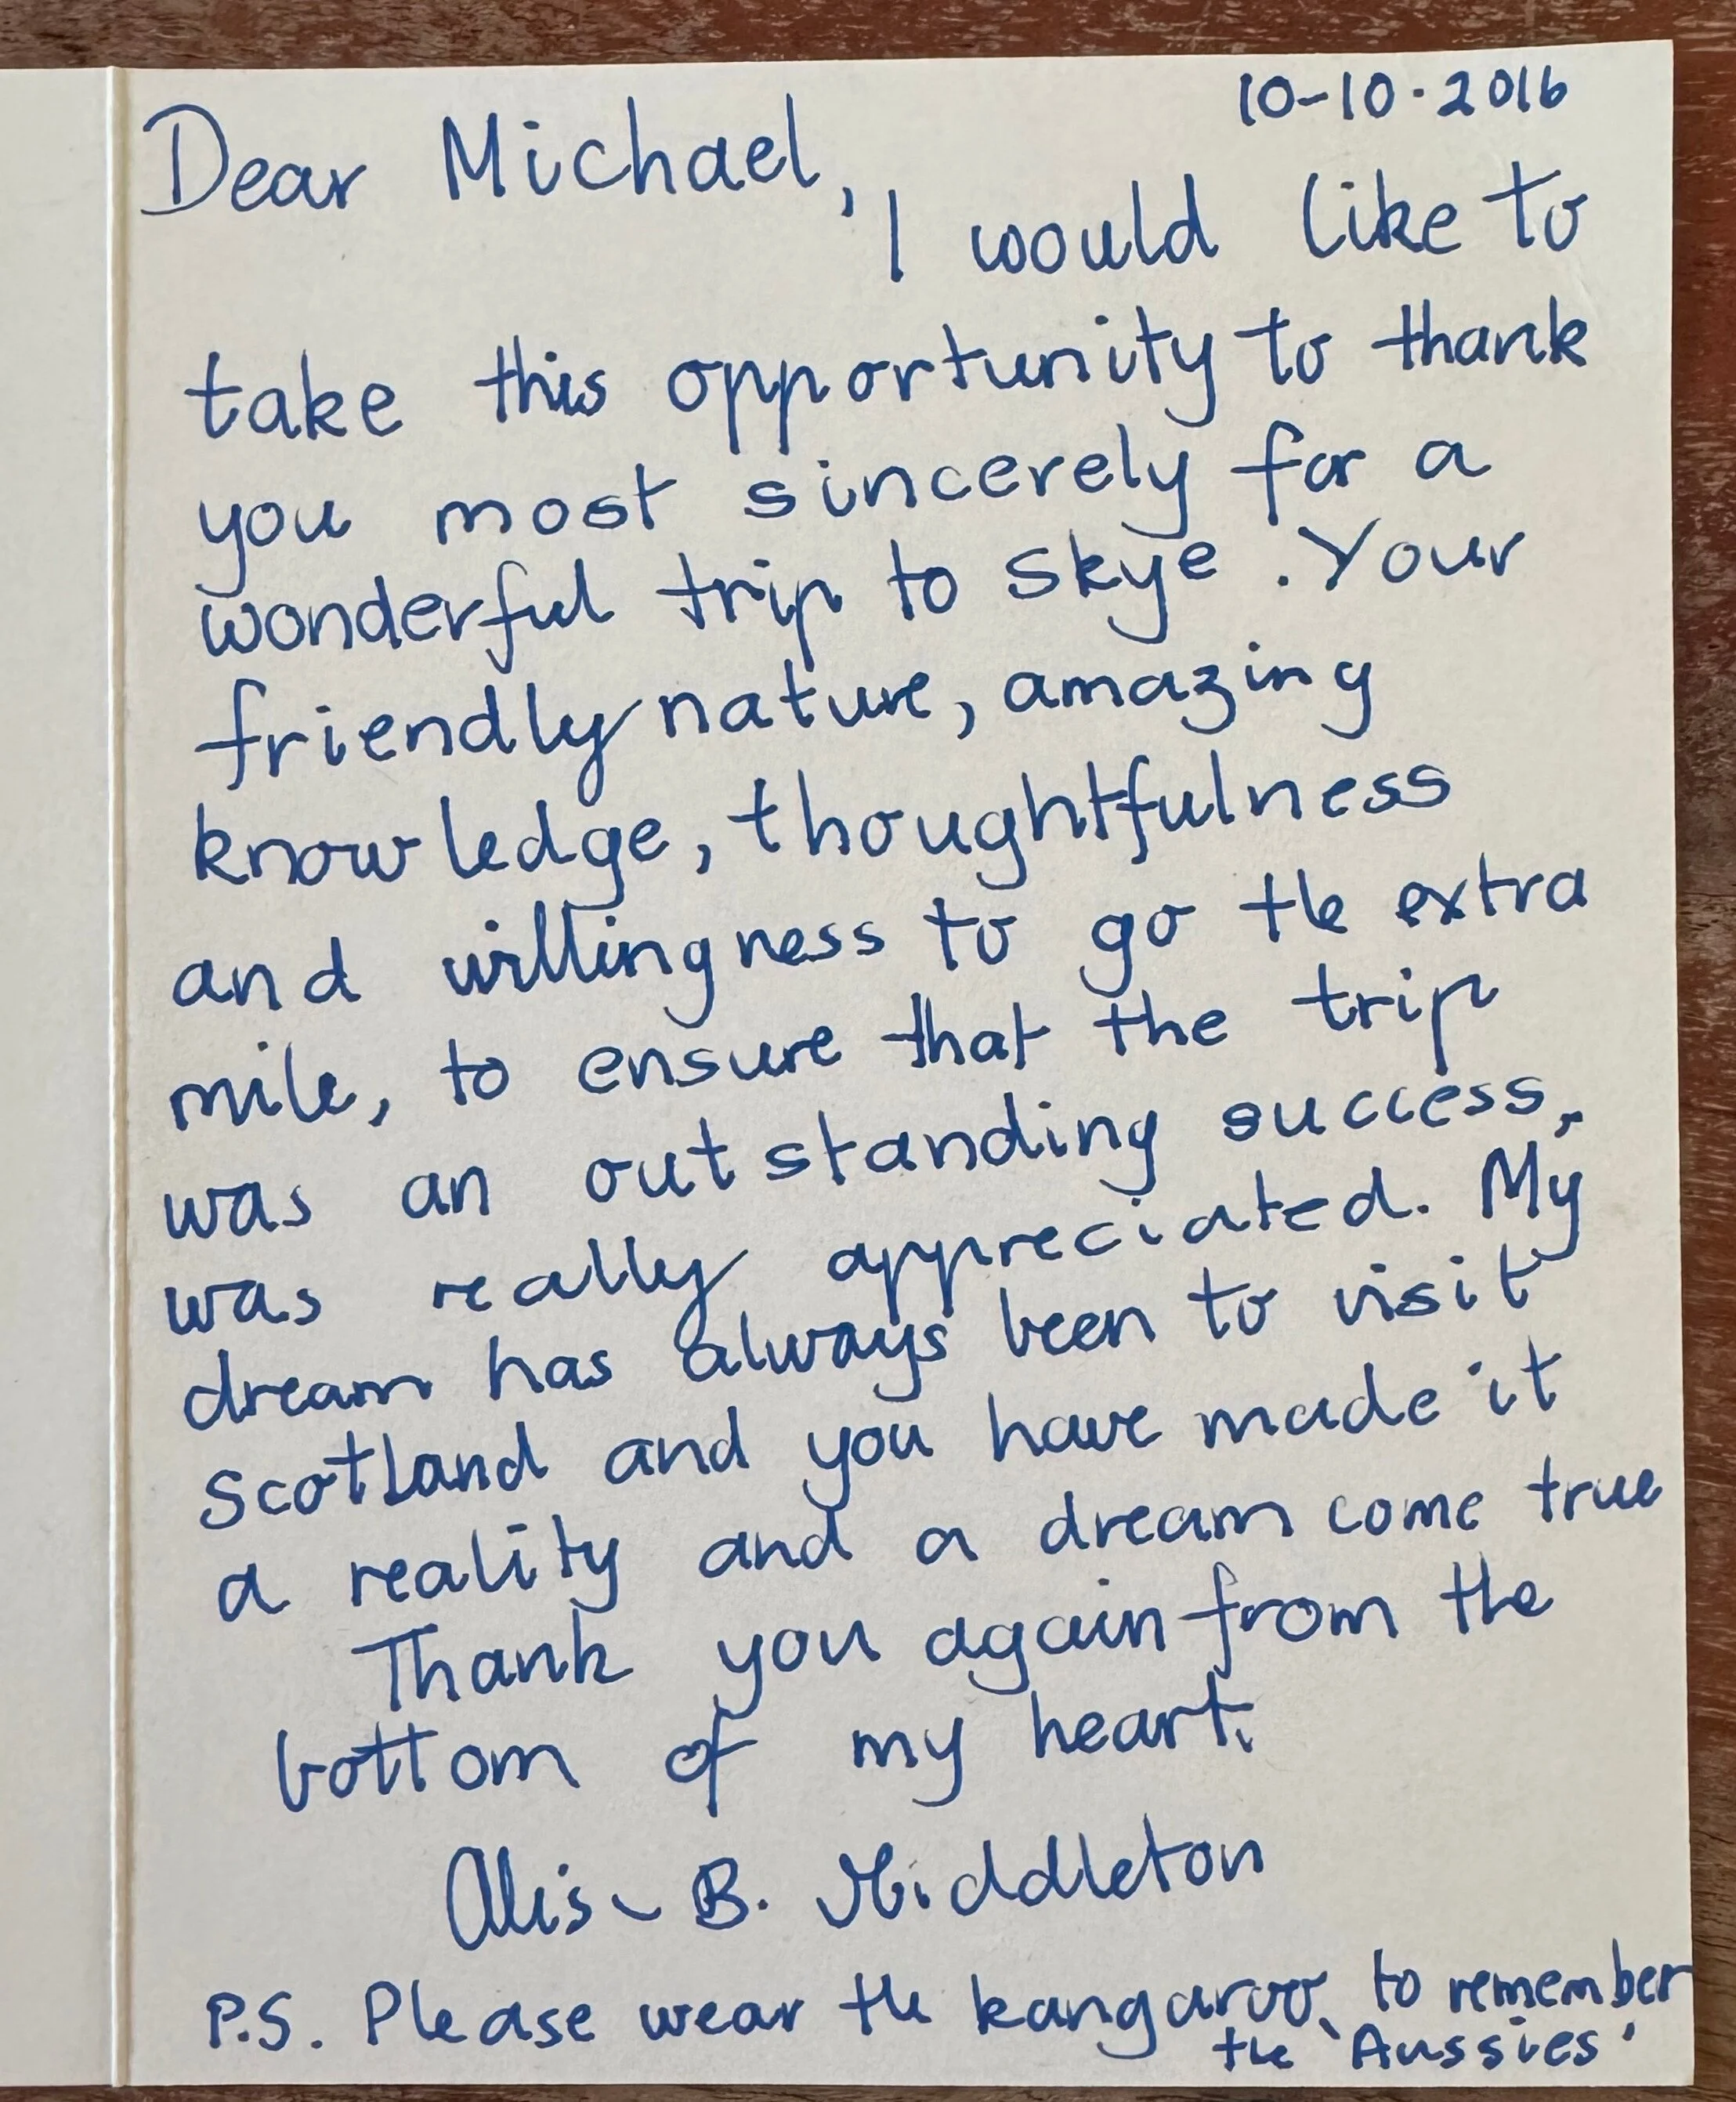 10-10.2016
Dear Michael,
I would like to
take this opportunity to thank
you most sincerely for a
wonderful trip to Skye. Your
friendly nature, amazing
knowledge, thoughtfulness
and willingness to go the extra
mile, to ensure that the trip
was an outstanding success,
was really appreciated. My
dream has always been to visit
Scotland and you have made it
a reality and a dream come true
Thank you again from the
bottom of my heart.
B. Middleton
P.S. Please wear the kangaroo, to remember
the 'Aussies'